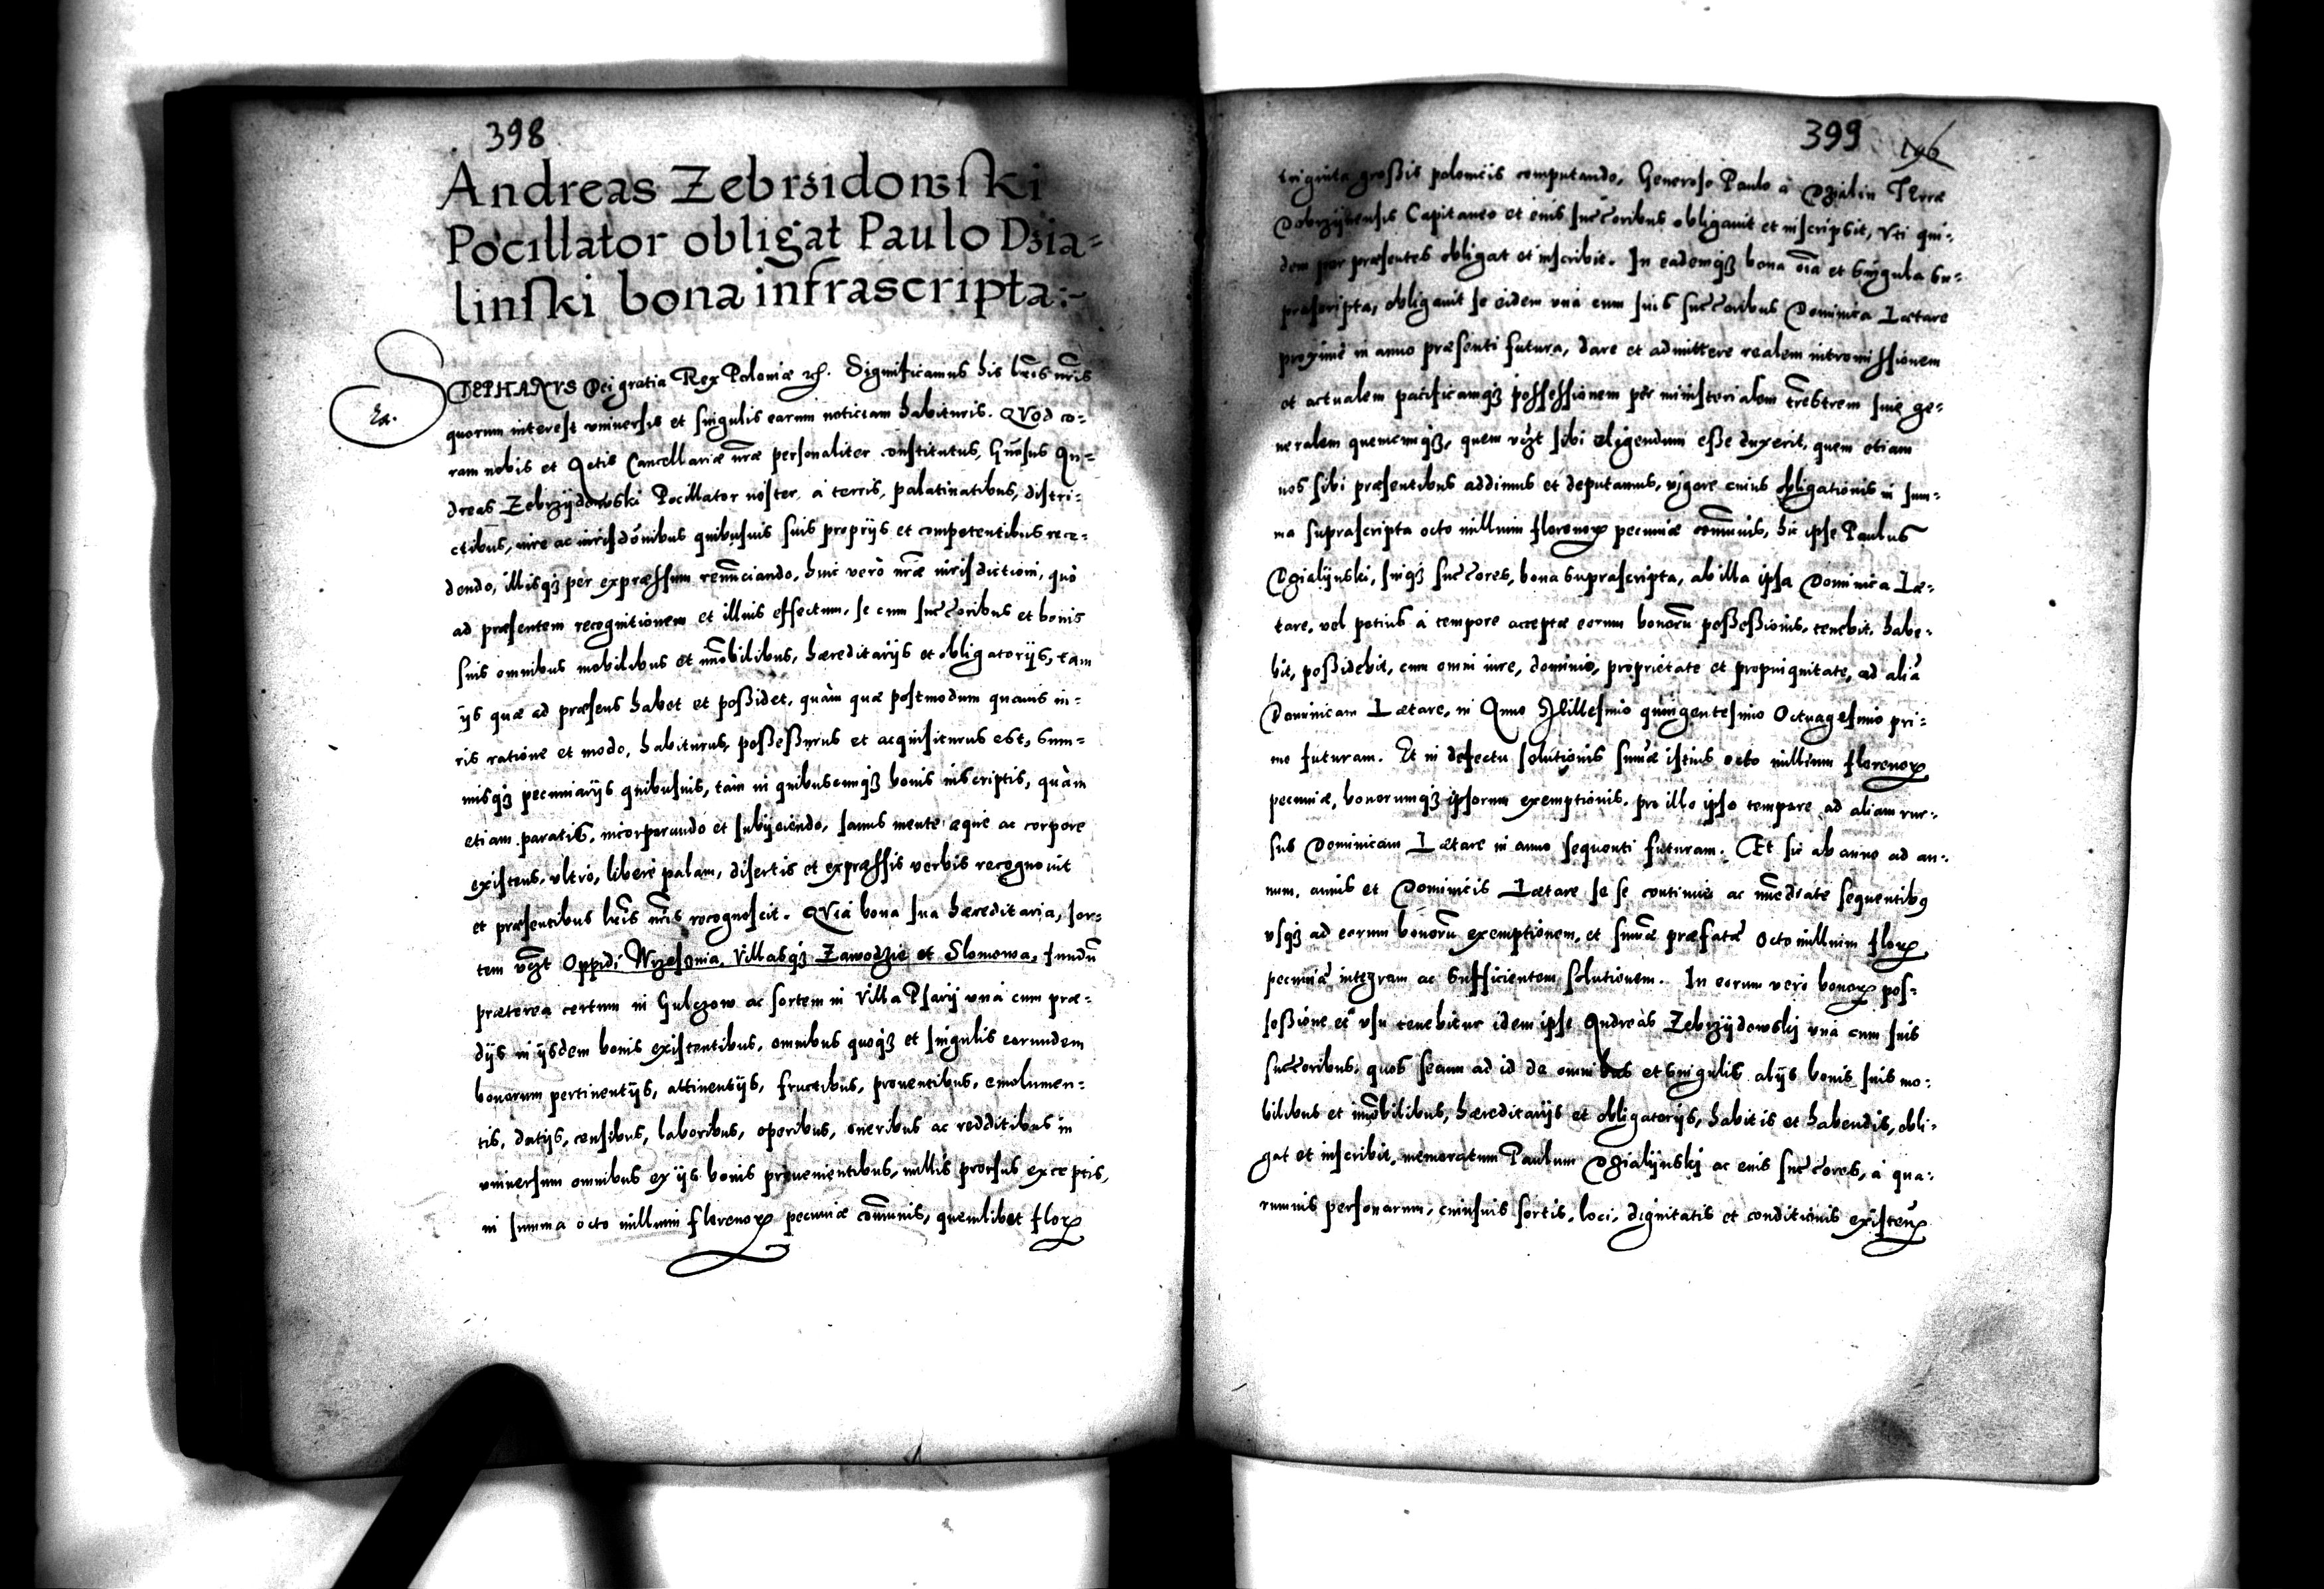 398
Andreas Zebrzidowski
Pocillator obligat Paulo Dzia=
linski bona infrascripta:~
STEPHANVS Dei gratia Rex Poloniæ &c. Significamus his lr̃is nr̃is
quorum interest vniuersis et singulis earum noticiam habituris. QVod co=
ram nobis et Actis Cancellariæ nr̃æ personaliter constitutus, Gnõsus An=
dreas Zebrzÿdowski Pocillator noster, a terris, palatinatibus, distri=
ctibus, iure ac iurisdõnibus quibusuis suis proprijs et competentibus rece=
dendo, illisq3 per expræssum renũciando, huic verò nr̃æ iurisdictioni, quò
ad præsentem recognitionem et illius effectum, se cum succ̃oribus et bonis
suis omnibus mobilibus et im̃obilibus, hæreditarijs et obligatorijs, tam
ijs quæ ad præsens habet et poßidet, quàm quæ postmodum quouis iu=
ris ratione et modo, habiturus, poßeßurus et acquisiturus est, sum=
misq3 pecuniarijs quibusuis, tàm in quibuscumq3 bonis inscriptis, quàm
etiam paratis, incorporando et subijciendo, sanus mente æque ac corpore
existens, vltro, liberè palam, disertis et expræssis verbis recognouit
et præsentibus lr̃is nr̃is recognoscit. QVia bona sua hæreditaria, sor=
tem vz̃t Oppidi Wrzesnia, Villasq3 Zawodzie et Slomowa, fundũ
præterea certum in Gulczow ac sortem in Villa Psarij vnà cum præ=
dijs in ijsdem bonis existentibus, omnibus quoq3 et singulis eorundem
bonorum pertinentijs, attinentijs, fructibus, prouentibus, emolumen=
tis, datijs, censibus, laboribus, operibus, oneribus ac redditibus in
vniuersum omnibus ex ijs bonis prouenientibus, nullis prorsus exceptis,
in summa octo millium florenoꝝ pecuniæ com̃unis, quemlibet floꝝ
399
triginta großis polonicis computando, Generoso Paulo à Dzialin Terræ
Dobrzÿnensis Capitaneo et eius succ̃oribus obligauit et inscripsit, Vti qui=
dem per præsentes obligat et inscribit. In eademq3 bona oĩa et singula su=
prascripta, obligauit se eidem vnà cum suis succ̃oribus Dominica Lætare
proximè in anno præsenti futura, dare et admittere realem intromissionem
et actualem pacificamq3 possessionem per ministerialem trẽstrem siue ge=
neralem quemcunq3, quem vz̃t sibi eligendum eße duxerit, quem etiam
nos sibi præsentibus addimus et deputamus, vigore cuius obligationis in sum=
ma suprascripta octo millium florenoꝝ pecuniæ com̃unis, hic ipse Paulus
Dzialÿnski, suiq3 succ̃ores, bona suprascripta, ab illa ipsa Dominica Læ=
tare, vel potius à tempore acceptæ eorum bonorũ poßeßionis, tenebit, habe=
bit, poßidebit, cum omni iure, dominio, proprietate et propinquitate, ad aliã
Dominicam Lætare, in Anno Millesimo quingentesimo Octuagesimo pri=
mo futuram. Et in defectu solutionis sum̃æ istius octo millium florenoꝝ
pecuniæ, bonorumq3 ipsorum exemptionis, pro illo ipso tempore ad aliam rur=
sus Dominicam Lætare in anno sequenti futuram. Et sic ab anno ad an=
num, annis et Dominicis Lætare se se continuè ac im̃ediatè sequentibꝰ
vsq3 ad eorum bonorũ exemptionem, et sum̃æ præfatæ octo millium floꝝ
pecuniæ integram ac sufficientem solutionem. In eorum verò bonoꝝ pos=
seßione et vsu tenebitur idem ipse Andreas Zebrzÿdowskj vnà cum suis
succ̃oribus, quos secum ad id de omnibus et singulis alijs bonis suis mo=
bilibus et im̃obilibus, hæreditarijs et obligatorijs, habitis et habendis, obli=
gat et inscribit, memoratum Paulum Dzialÿnskj ac eius succ̃ores, à qua=
rumuis personarum, cuiusuis sortis, loci, dignitatis et conditionis existenꝝ